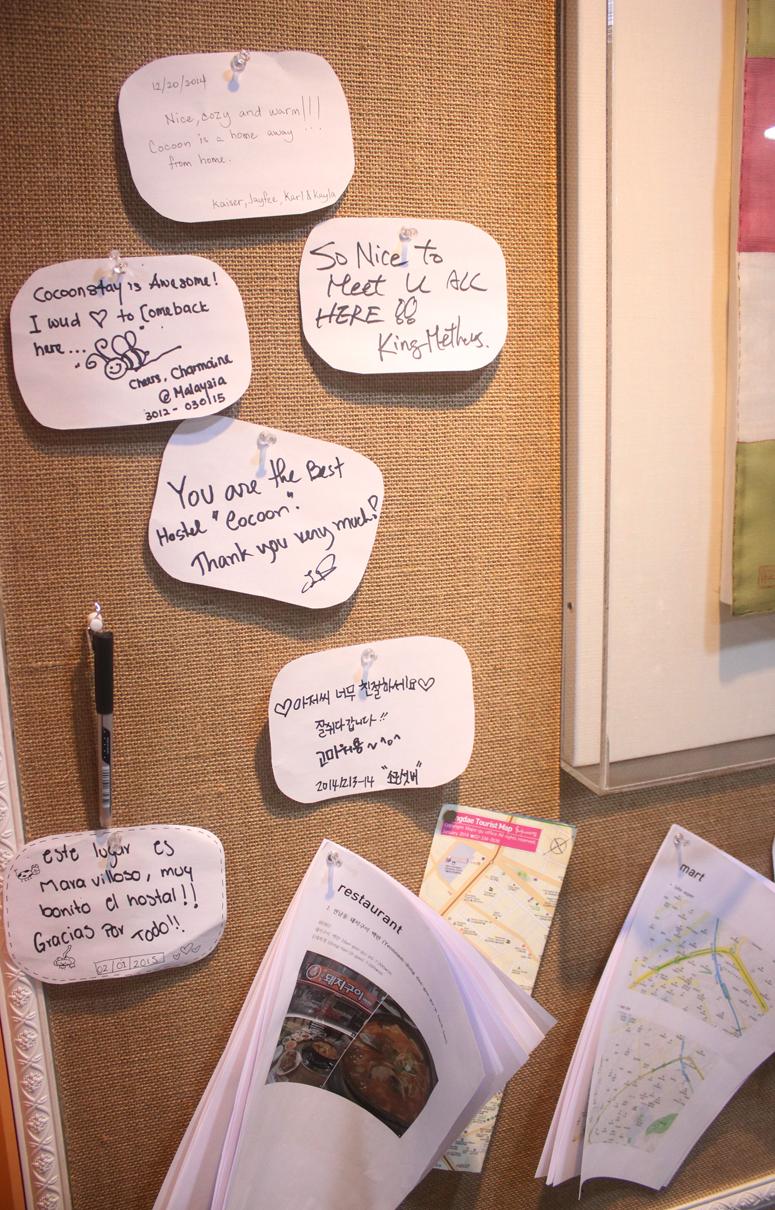 12/20/2014
Nice, cozy and warm!!!
Cocoon is a home away ...
from home.
Kaiser, Jayfee, Karl & Kayla
So Nice to
Meet U ALL
HERE !!
King-Metheus.
Cocoonstay is Awesome!
I wud ♡ to Comeback
here...
Cheers, Charmaine
@ Malaysia
3012 - 030115
You are the Best
Hostel "Cocoon".
Thank you very much!
♡아저씨 너무 친절하세요♡
잘쉬다갑니다!!
고마워용~^o^
este lugar es
Maravilloso, muy
bonito el hostal!!
Gracias Por Todo!!
02/01/2015
gdae Tourist Map
restaurant
돼지구이
mart